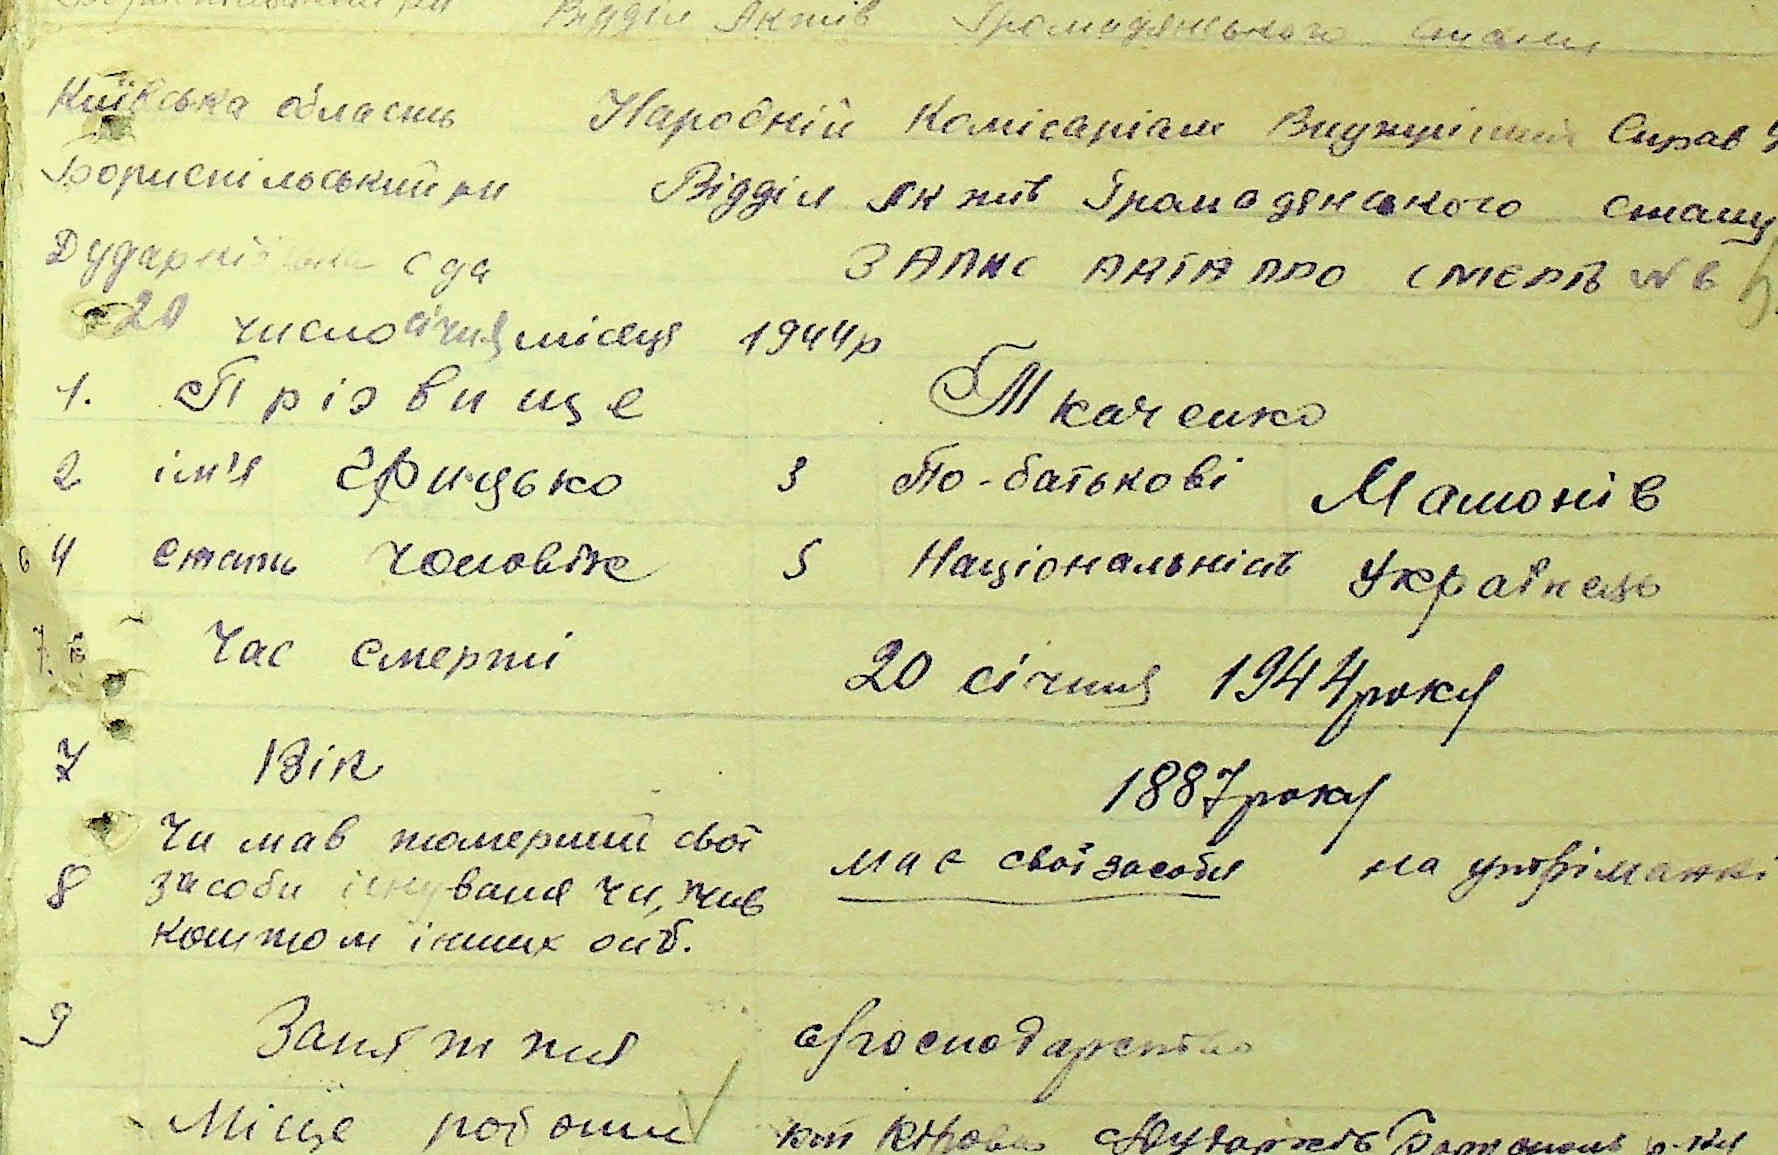 Відділ Актів Громадянського стану
Київська область Народній Комісаріат Внутрішніх Справ У
Бориспільський рн Відділ Актів Громадянського стану
Дударківська с да ЗАПИС АКТА ПРО СМЕРТЬ № 6
20 число січня місяця 1944р
1. Прізвище Ткаченко
2 ім'я Грицько 3 По-батькові Мамонів
4 стать чоловік 5 Національність Українець
Час смерті 20 січня 1944 року
7 Вік 1887 року
Чи мав померший свої
8 засоби існуваня чи, жив має свої засоби на утріманні
коштом інших осіб.
9 Заняття Господарство
Місце роботи кт Кірова Дударків Бориспіль р-ну